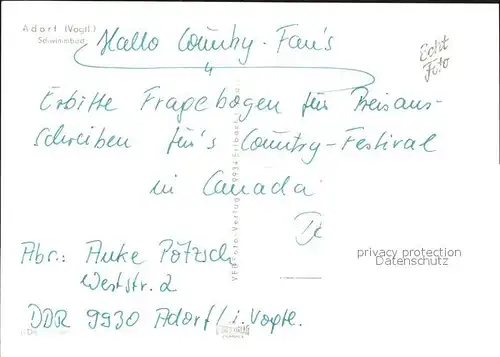 Adorf (Vogtl.)
Schwimmbad
Hallo Country-Fan's
Echt
Foto
Erbitte Fragebogen für Preisaus-
schreiben für's Country-Festival
in Canada
privacy protection
Datenschutz
Abs.: Anke Pötzsch
Weststr. 2
DDR 9930 Adorf/i. Vogtl.
VEB Foto-Verlag 9934 Erlbach